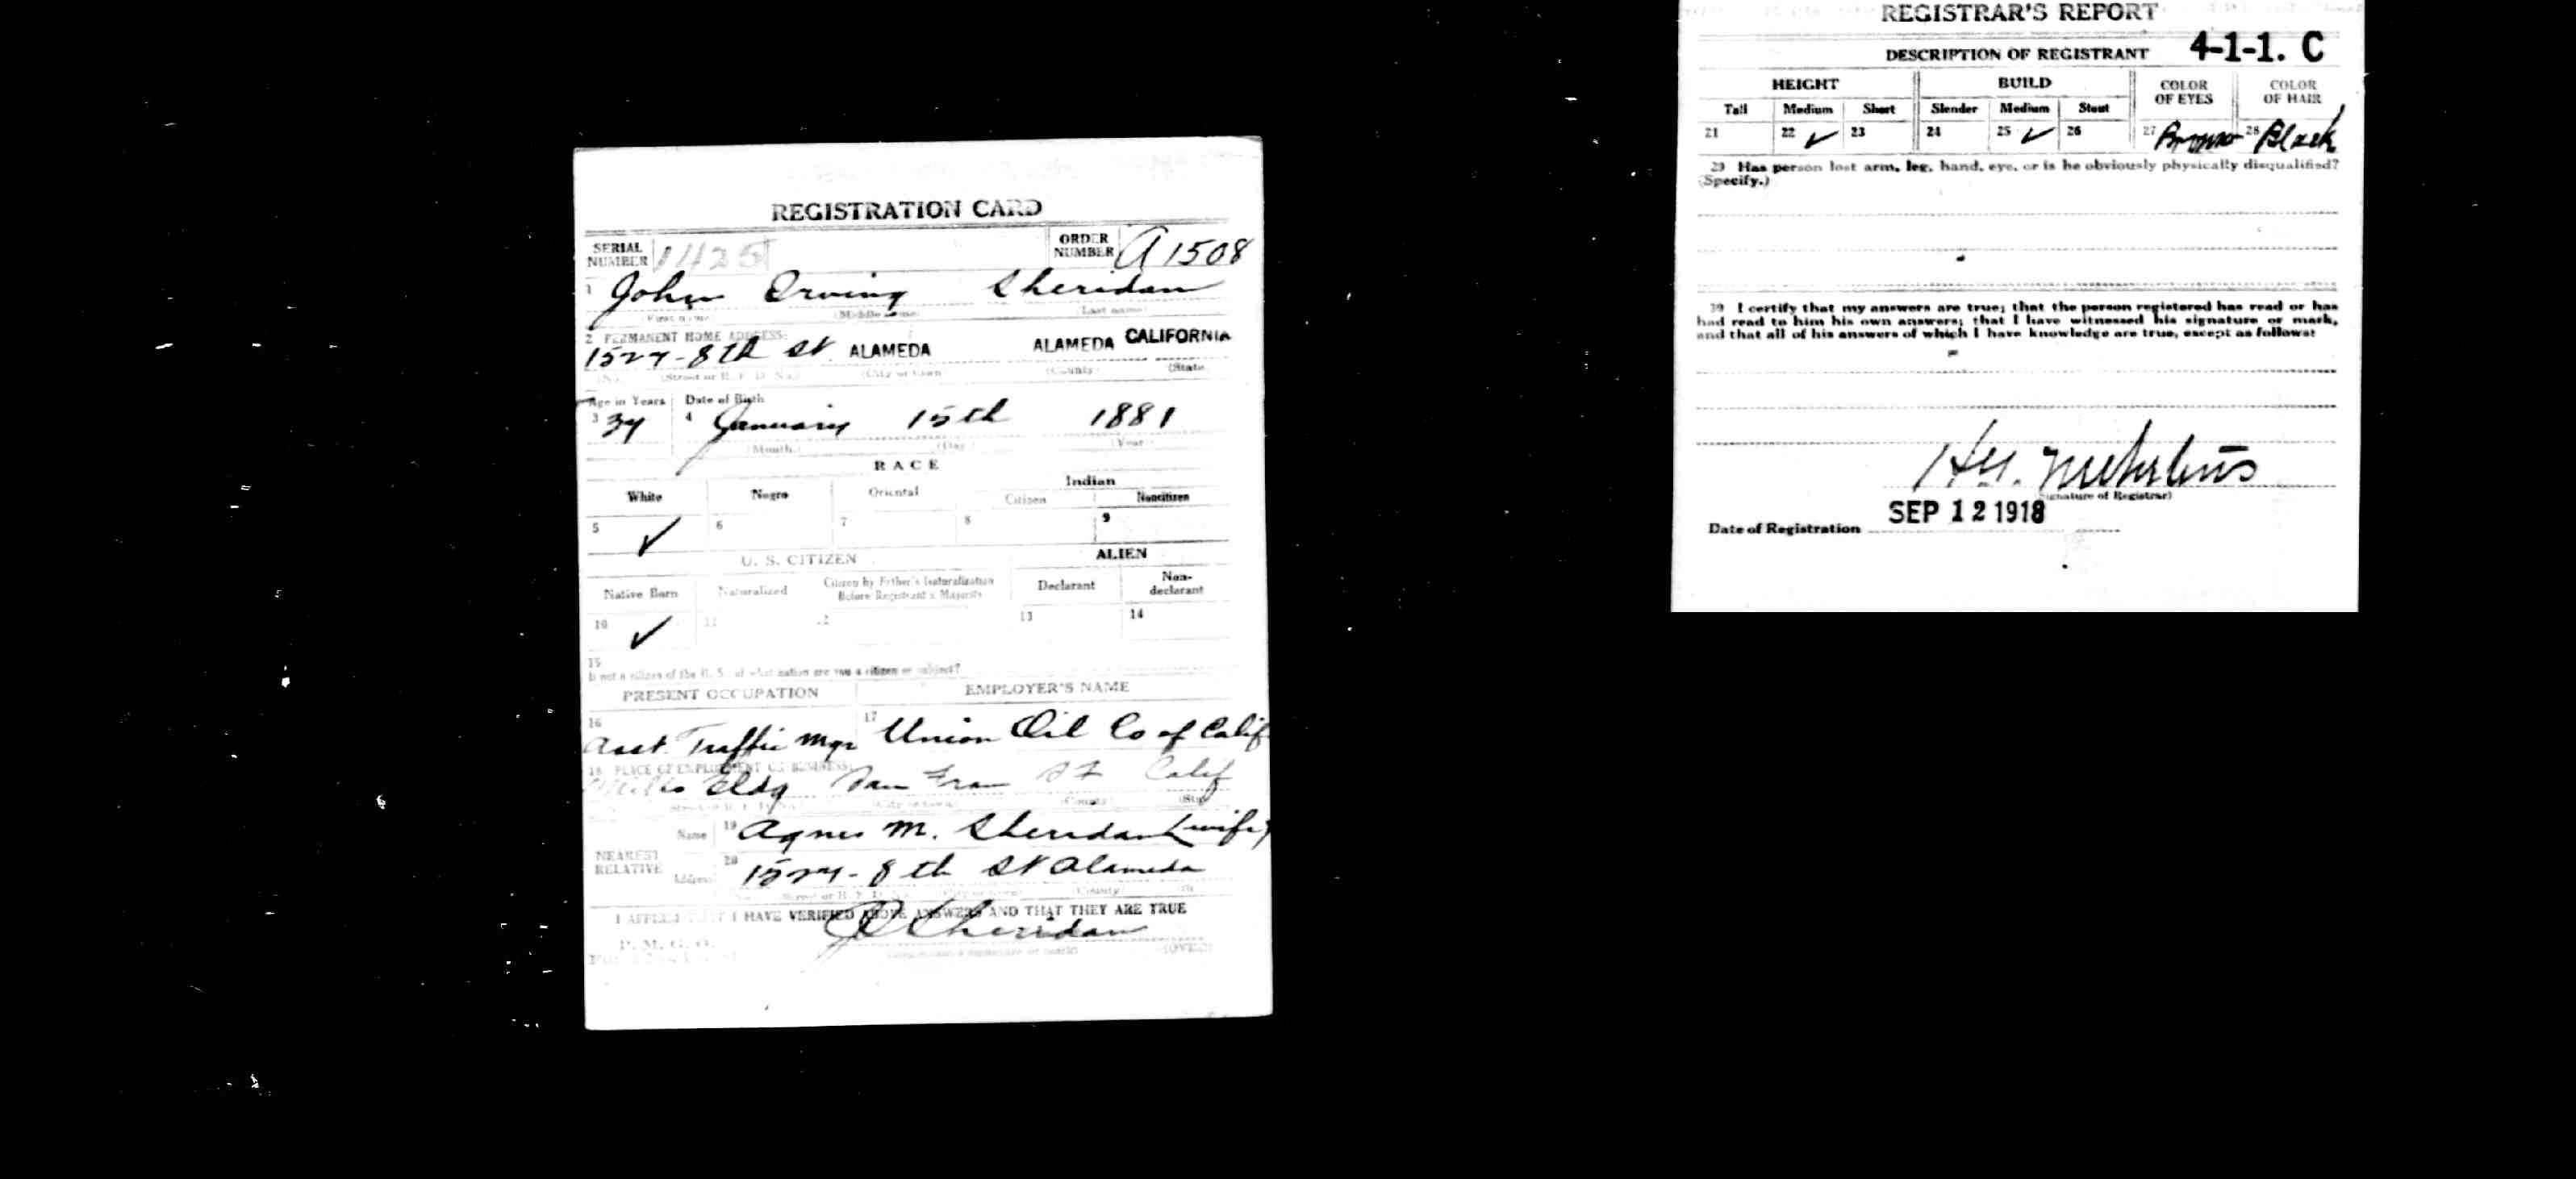 REGISTRATION CARD
SERIAL NUMBER 1425 ORDER NUMBER A 1508
1 John Irving Sheridan
(First name) (Middle name) (Last name)
2 PERMANENT HOME ADDRESS:
1527 - 8th St ALAMEDA ALAMEDA CALIFORNIA
(No.) (Street or R. F. D. No.) (City or town) (County) (State)
Age in Years Date of Birth
3 37 4 January 15th 1881
(Month.) (Day.) (Year.)
RACE
White Negro Oriental Indian
Citizen Noncitizen
5 ✓ 6 7 8 9
U. S. CITIZEN ALIEN
Native Born Naturalized Citizen by Father's Naturalization Before Registrant's Majority Declarant Non-declarant
10 ✓ 11 12 13 14
15
If not a citizen of the U. S., of what nation are you a citizen or subject?
PRESENT OCCUPATION EMPLOYER'S NAME
16 Asst. Traffic Mgr 17 Union Oil Co of Calif
18 PLACE OF EMPLOYMENT OR BUSINESS:
Mills Bldg San Fran S F Calif
(County) (State)
NEAREST RELATIVE
Name 19 Agnes M. Sheridan (wife)
Address 20 1527 - 8th St Alameda
I AFFIRM THAT I HAVE VERIFIED ABOVE ANSWERS AND THAT THEY ARE TRUE
P. M. G. O.
J I Sheridan
(Registrant's signature or mark) (OVER)
REGISTRAR'S REPORT
4-1-1. C
DESCRIPTION OF REGISTRANT
HEIGHT BUILD COLOR OF EYES COLOR OF HAIR
Tall Medium Short Slender Medium Stout
21 22 ✓ 23 24 25 ✓ 26 27 Brown 28 Black
29 Has person lost arm, leg, hand, eye, or is he obviously physically disqualified?
(Specify.)
30 I certify that my answers are true; that the person registered has read or has
had read to him his own answers; that I have witnessed his signature or mark,
and that all of his answers of which I have knowledge are true, except as follows:
(Signature of Registrar)
Date of Registration SEP 12 1918